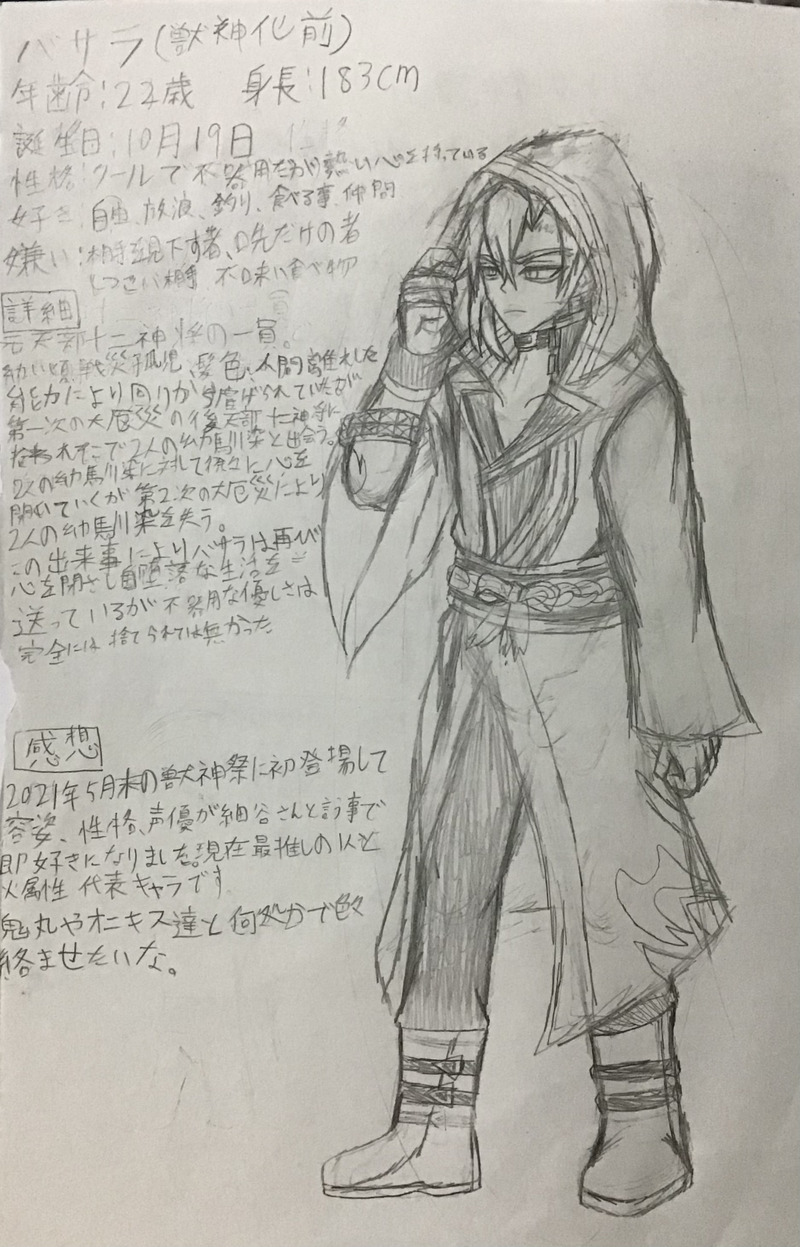 バサラ(獣神化前)
年齢:22歳 身長:183cm
誕生日:10月19日
性格:クールで不器用だが熱い心を持っている
好き:自由、放浪、釣り、食べる事、仲間
嫌い:相手を見下す者、口先だけの者
しつこい相手 不味い食べ物
詳細
元天部十二神将の一員。
幼い頃戦災孤児、髪色、人間離れした
能力により周りから虐げられていたが
第一次の大厄災の後天部十二神将に
拾われそこで2人の幼馴染と出会う。
2人の幼馴染に対して徐々に心を
開いていくが第2次の大厄災により
2人の幼馴染を失う。
この出来事によりバサラは再び
心を閉ざし自堕落な生活を
送っているが不器用な優しさは
完全には捨てられては無かった
感想
2021年5月末の獣神祭に初登場して
容姿、性格、声優が細谷さんと言う事で
即好きになりました。現在最推しの1人と
火属性代表キャラです
鬼丸やオニキス達と何処かで色々
絡ませたいな。